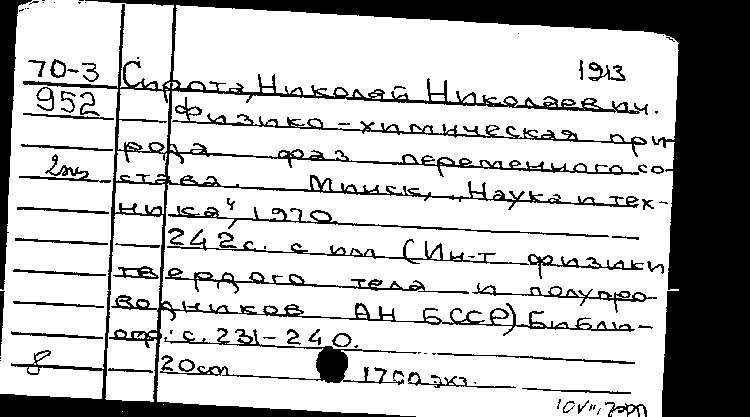 1913
70-3 Сирота, Николай Николаевич.
952 Физико-химическая при-
рода фаз переменного со-
2 экз става. Минск, "Наука и тех-
ника", 1970.
242 с. с ил (Ин-т физики
твердого тела и полупро-
водников АН БССР) Библи-
огр: с. 231-240.
8 20 cm 1700 экз.